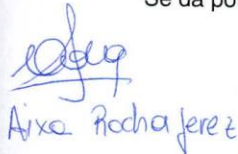 Se da po
Aixa Rocha Jerez